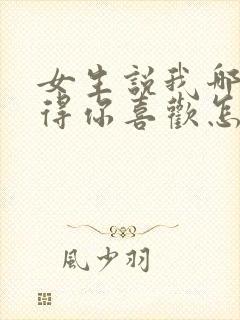 女生説我哪
得你喜歡怎
風少羽